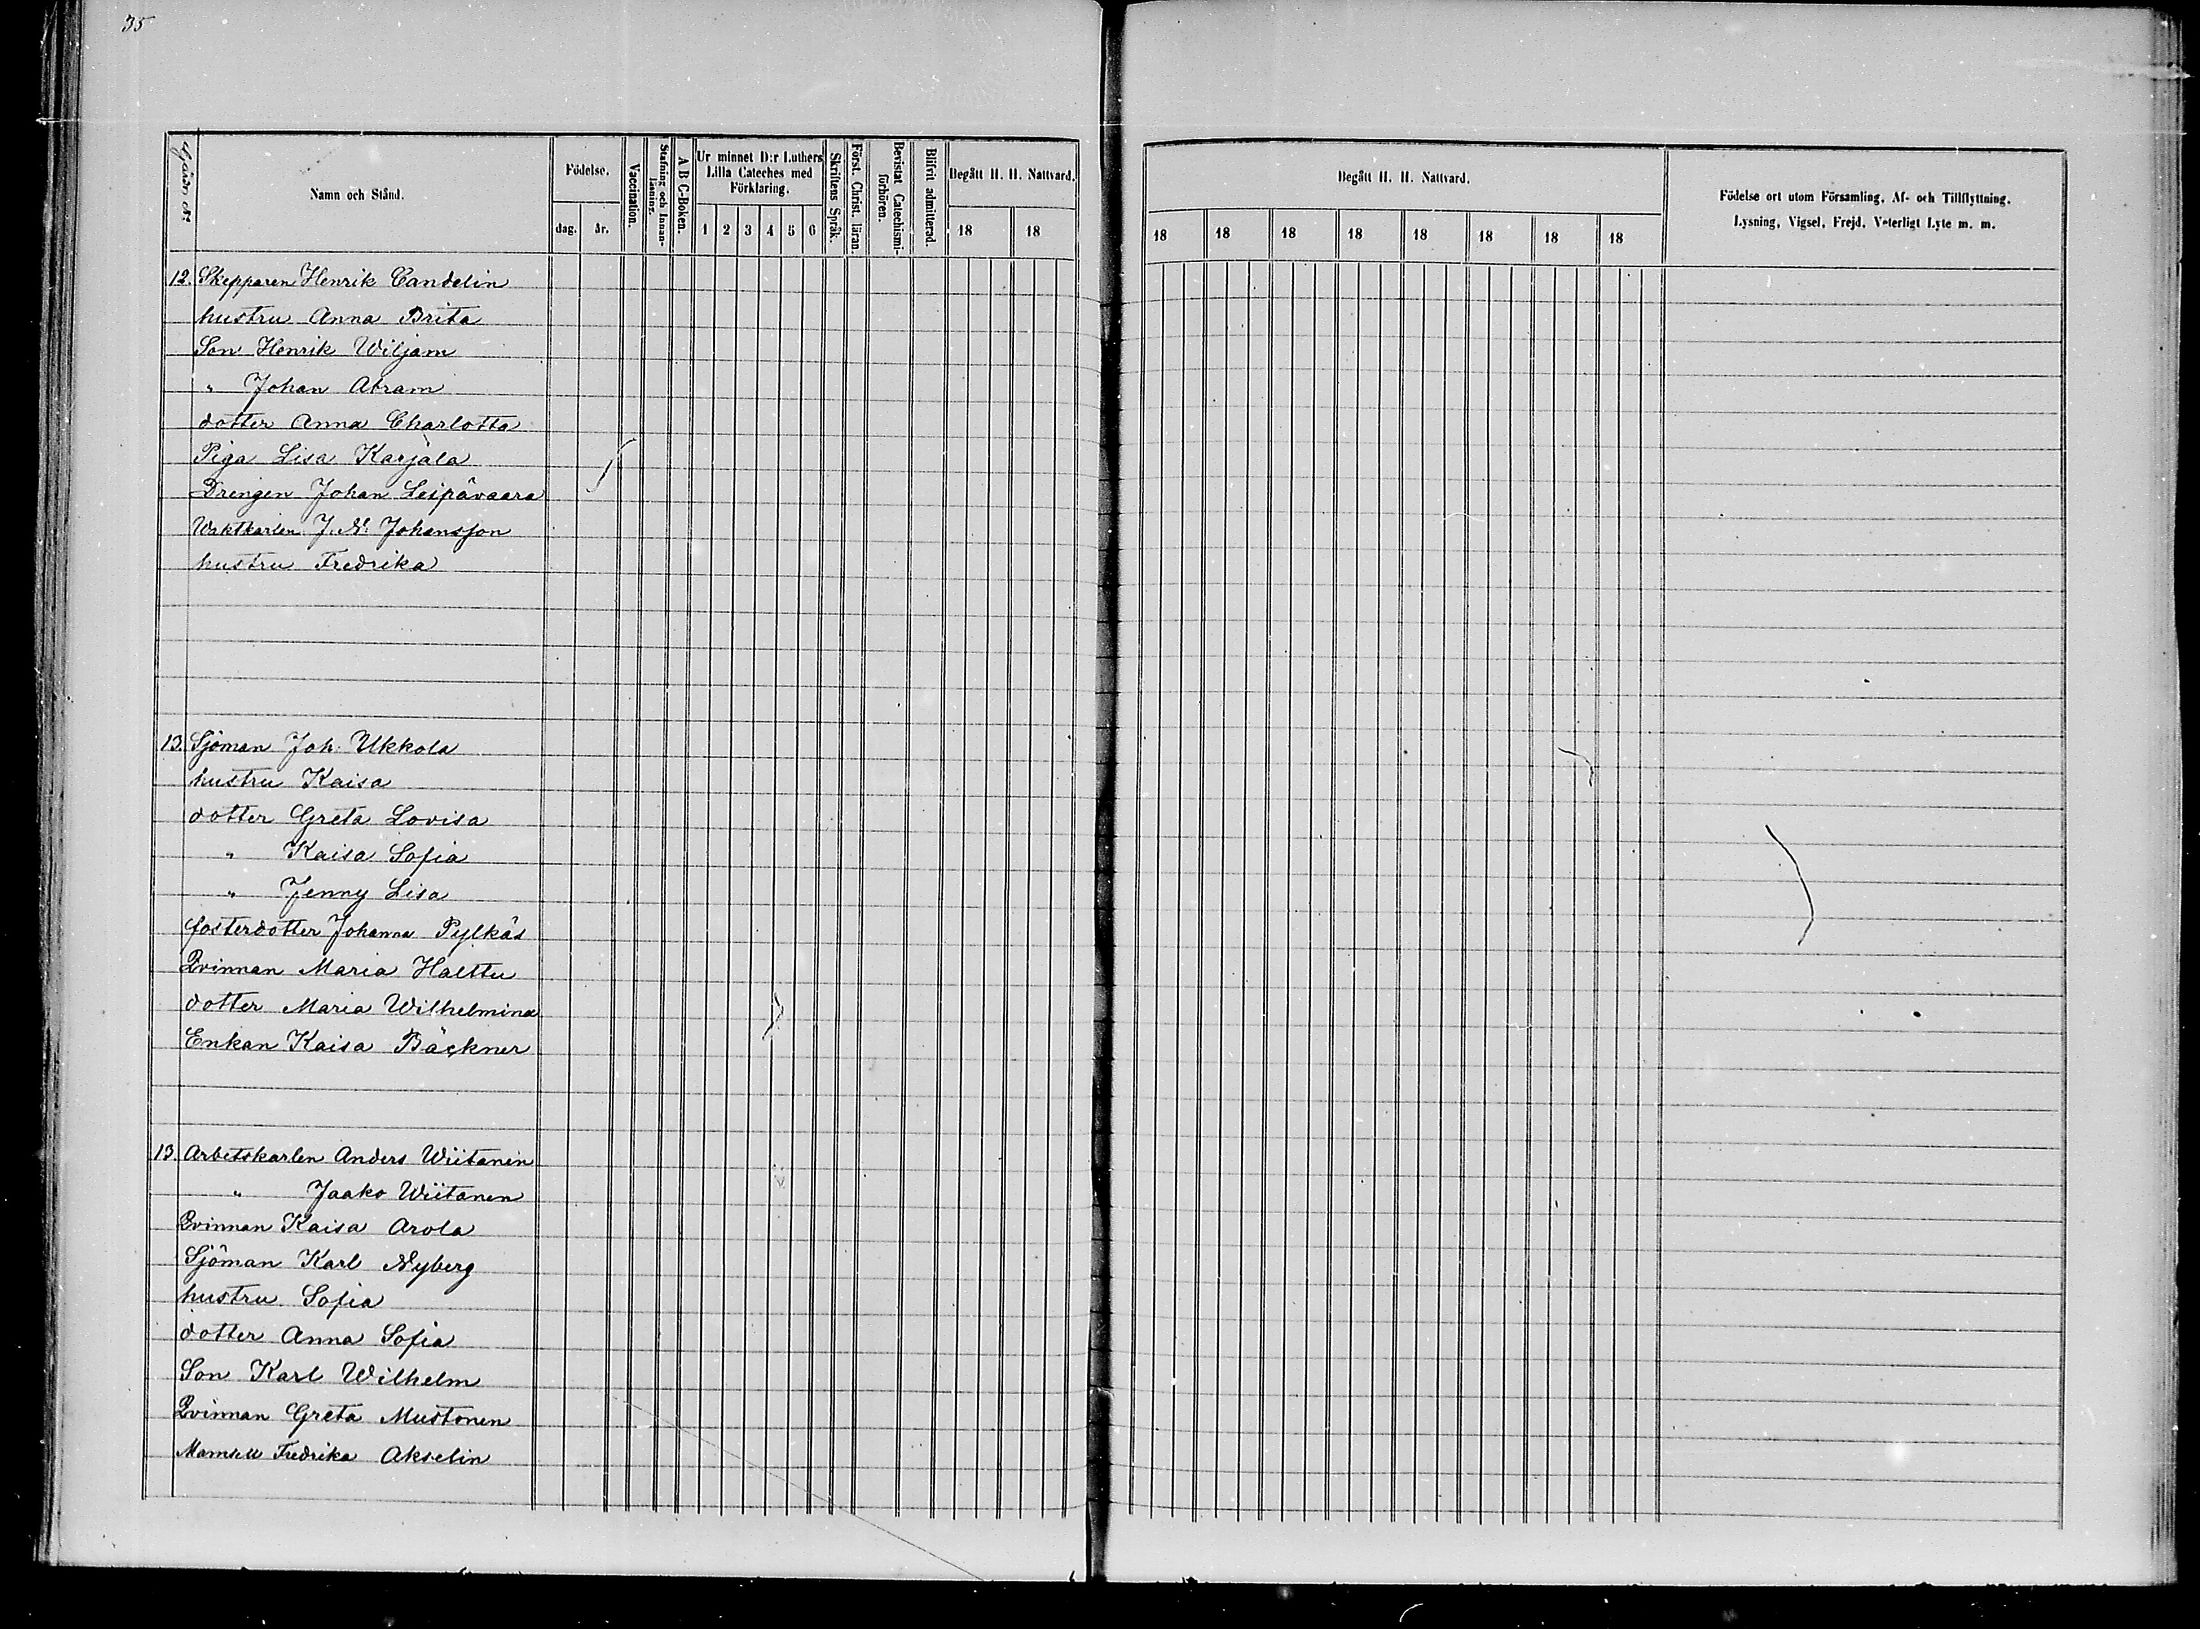 35
Gårds No.
Namn och Stånd.
Födelse.
dag. år.
Vaccination.
Stafning och Innan-
läsning.
A B C-Boken.
Ur minnet D:r Luthers
Lilla Cateches med
Förklaring.
1 2 3 4 5 6
Skriftens Språk.
Först. Christ. läran.
Bevistat Catechismi-
förhören.
Blifvit admitterad.
Begått H. H. Nattvard.
18 18
Begått H. H. Nattvard.
18 18 18 18 18 18 18 18
Födelse ort utom Församling, Af- och Tillflyttning,
Lysning, Vigsel, Frejd, Veterligt Lyte m. m.
12. Skepparen Henrik Candelin
hustru Anna Brita
Son Henrik Wiljam
" Johan Abram
dotter Anna Charlotta
Piga Lisa Karjala
Drengen Johan Leipävaara
Waktkarlen J. N. Johansson
hustru Fredrika
13. Sjöman Joh. Ukkola
hustru Kaisa
dotter Greta Lovisa
" Kaisa Sofia
" Jenny Lisa
fosterdotter Johanna Pylkäs
Qvinnan Maria Halttu
dotter Maria Wilhelmina
Enkan Kaisa Bäckner
13. Arbetskarlen Anders Wiitanen
" Jaako Wiitanen
Qvinnan Kaisa Arola
Sjöman Karl Nyberg
hustru Sofia
dotter Anna Sofia
Son Karl Wilhelm
Qvinnan Greta Mustonen
Mamsell Fredrika Akselin